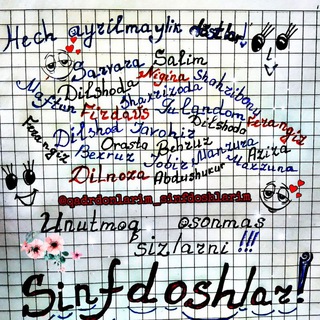 Hech ayrilmaylik dostlar!
Sarvara Salim
Dilshoda Nigina Shahribonu
Maftun Shahrizoda
Firdavs Gulandom
Farangiz Dilshoda Farangiz
Dilshod Farohiz
Orasta Behruz
Bexruz Jobir Manzura Aziza
Dilnoza Abdushukur Marzuna
@qadrdonlarim_sinfdoshlarim
Unutmoq osonmas
sizlarni !!!
Sinfdoshlar!